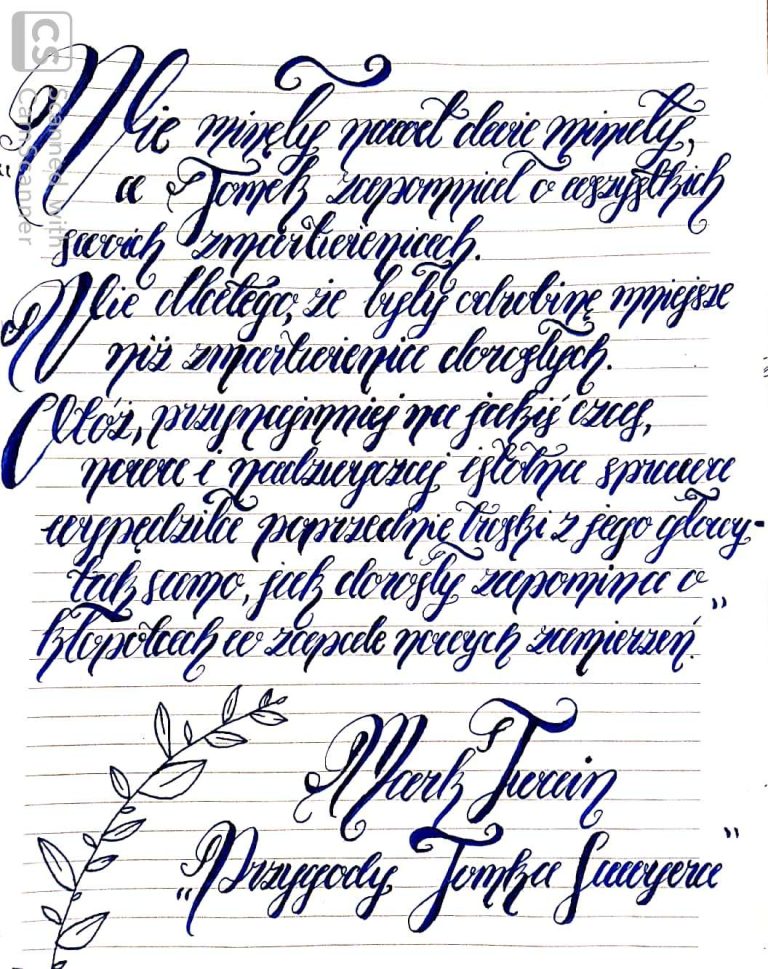 CS Scanned with CamScanner
Nie minęły nawet dwie minuty,
a Tomek zapomniał o wszystkich
swoich zmartwieniach.
Nie dlatego, że były odrobinę mniejsze
niż zmartwienia dorosłych.
Otóż, przynajmniej na jakiś czas,
nowa i nadzwyczaj istotna sprawa
wypędziła poprzednie troski z jego głowy-
tak samo, jak dorosły zapomina o
kłopotach w zapale nowych zamierzeń."
Mark Twain
„Przygody Tomka Sawyera"